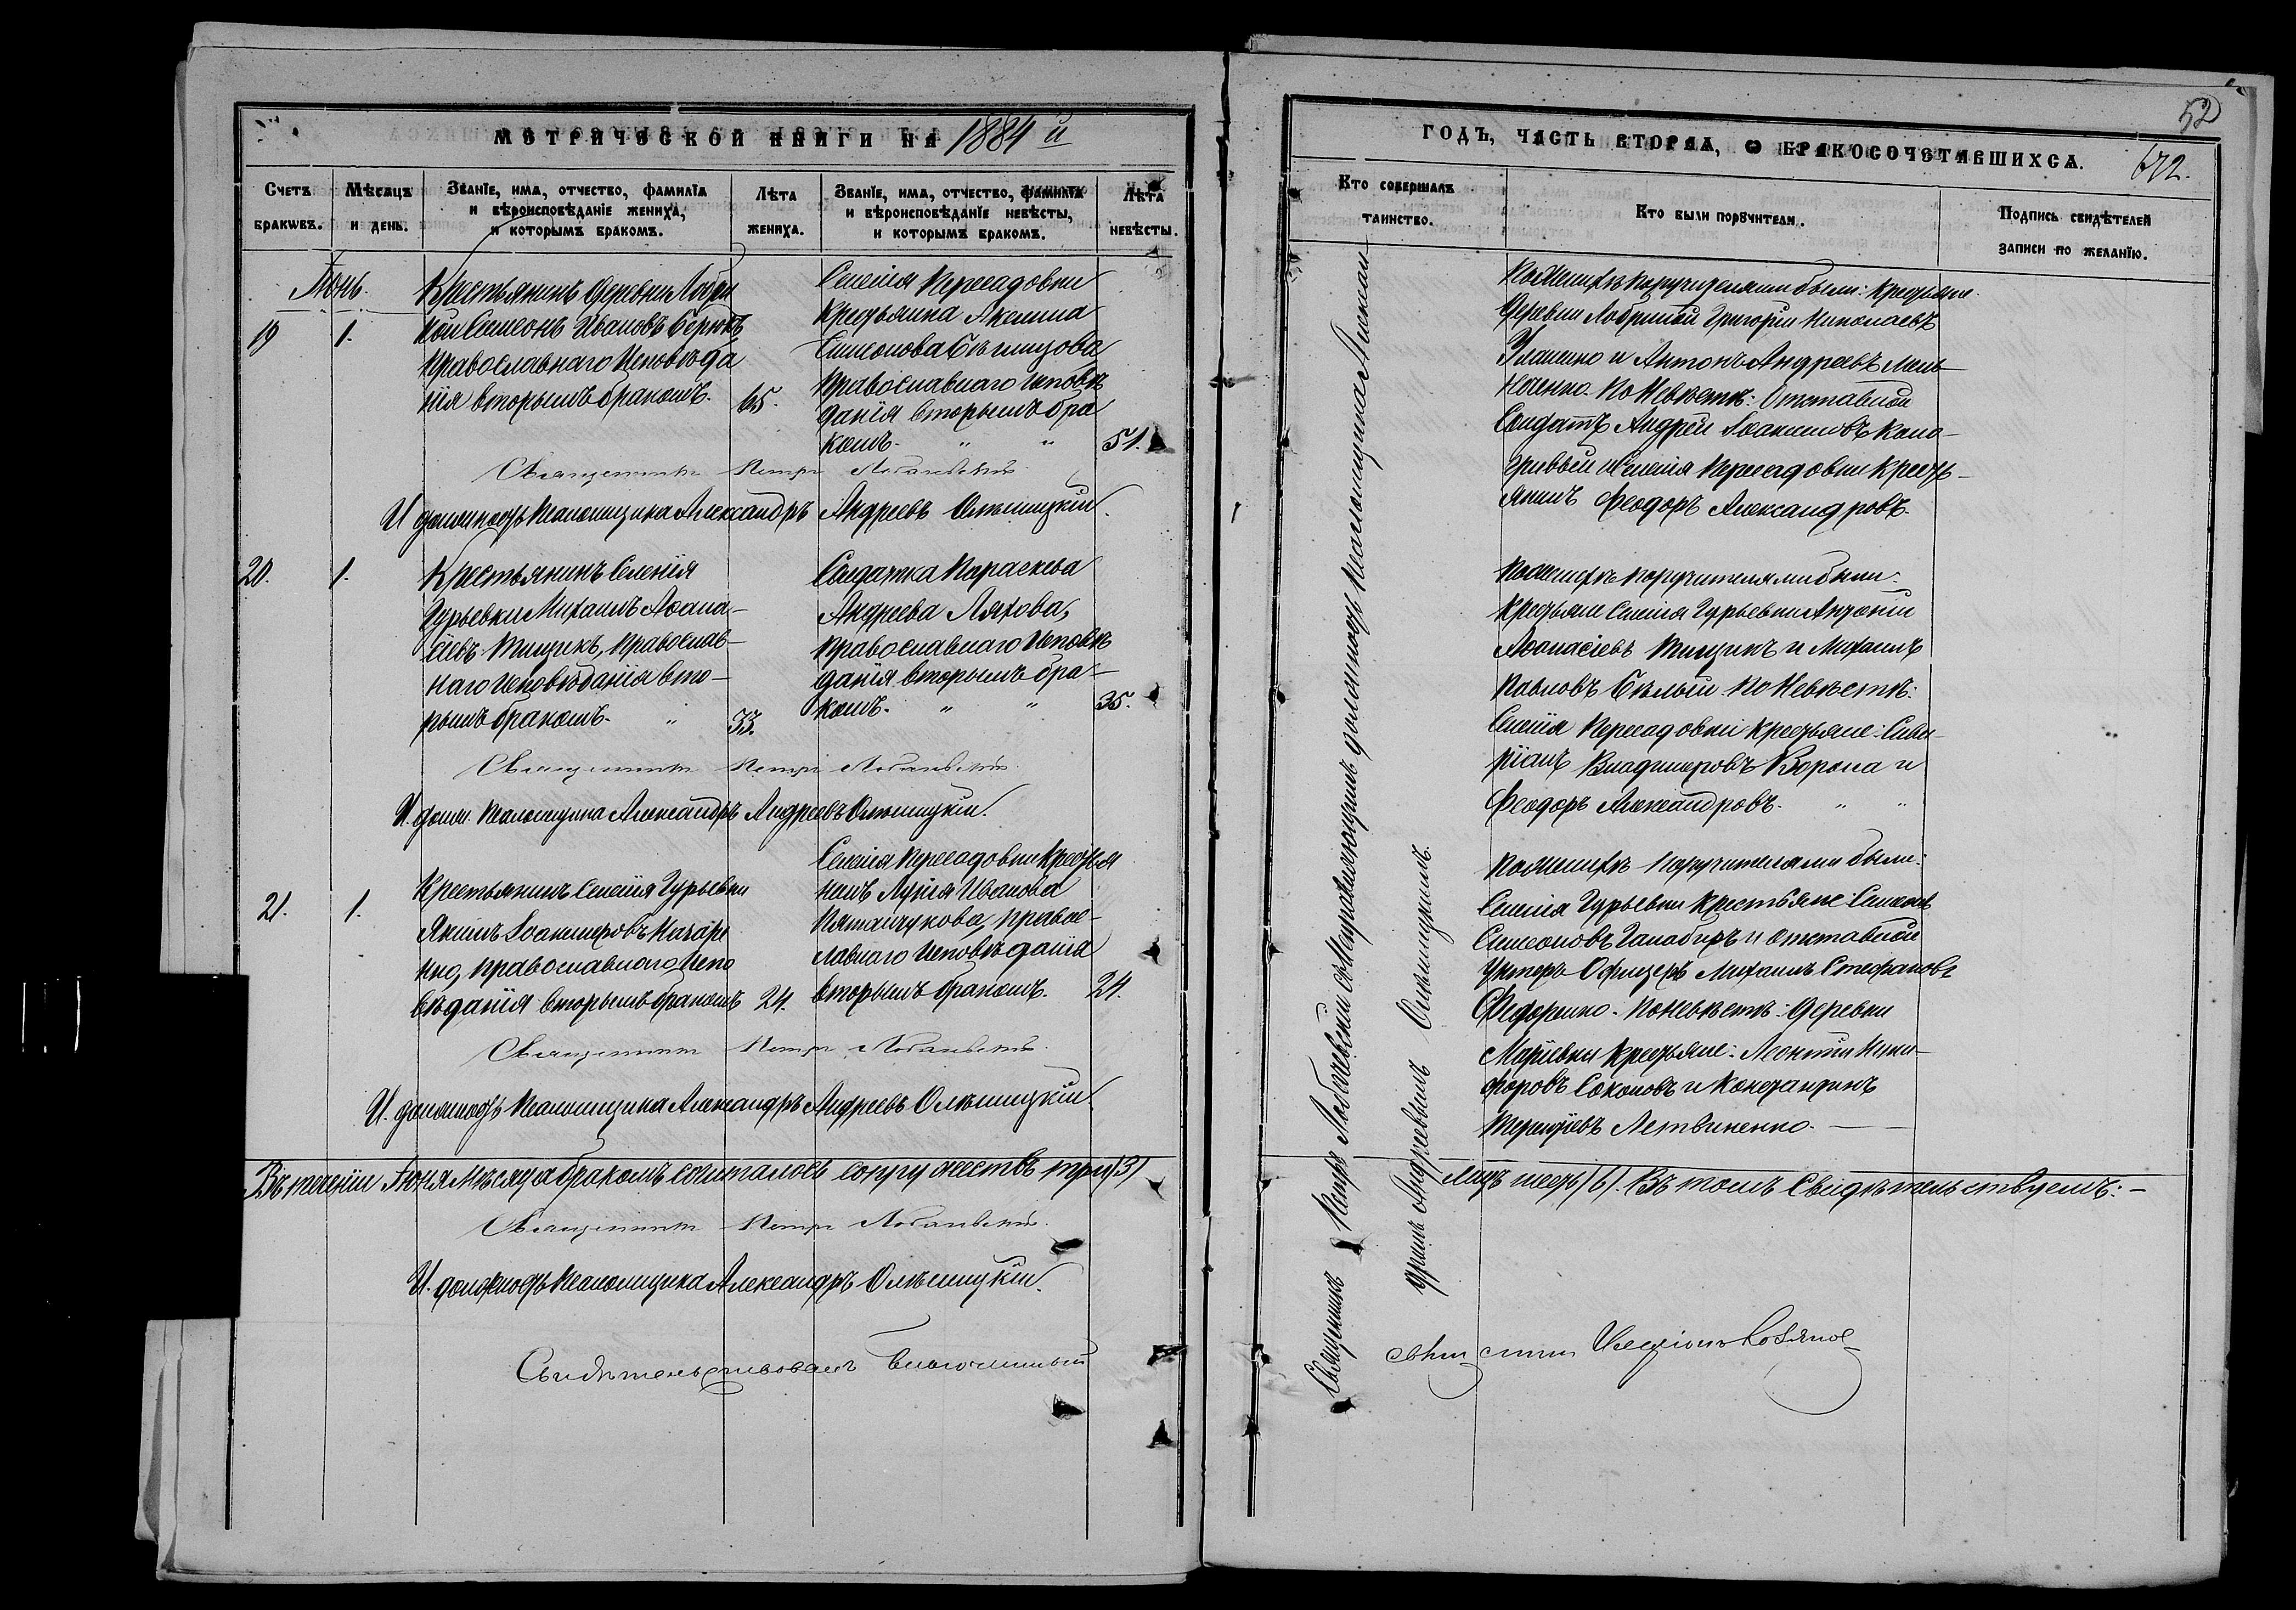 МЕТРИЧЕСКОЙ КНИГИ НА 1884 й
Счетъ браковъ.
Мѣсяцъ и день.
Званіе, имя, отчество, фамилія и вѣроисповѣданіе жениха, и которымъ бракомъ.
Лѣта жениха.
Званіе, имя, отчество, фамилія и вѣроисповѣданіе невѣсты, и которымъ бракомъ.
Лѣта невѣсты.
Іюнь.
19 1.
Крестьянинъ деревни Лобри
ной Симеонъ Ивановъ
Православнаго Исповѣда
нія вторымъ бракомъ. 65.
Селенія Пересадовки
Крестьянка Акилина
Симеонова
Православнаго Исповѣ
данія вторымъ бра
комъ. " " 51.
Священникъ Петръ
И. должность Псаломщика Александръ Андреевъ Олѣшицкій.
20. 1.
Крестьянинъ Селенія
Гурьевки Михаилъ Аѳана-
сіевъ Тищикъ, Православ-
наго Исповѣданія вто-
рымъ бракомъ. " 33.
Солдатка Параскева
Андреева Ляхова,
Православнаго Исповѣ
данія вторымъ бра-
комъ. " " 35.
Священникъ Петръ
И. долж. Псаломщика Александръ Андреевъ Олѣшицкій.
21. 1.
Крестьянинъ Селенія Гурьевки
Якимъ Назаре
нко, Православнаго Испо
вѣданія вторымъ бракомъ 24.
Селенія Пересадовки Крестья
Ивановa
Православ-
лавнаго Исповѣданія
вторымъ бракомъ. 24.
Священникъ Петръ
И. должность Псаломщика Александръ Андреевъ Олѣшицкій.
Въ теченіи Іюня мѣсяца бракомъ сочиталось супружествъ три (3)
Священникъ Петръ
И. должность Псаломщика Александръ Олѣшицкій.
Свидѣтельствовалъ Благочинный
52
ГОДЪ, ЧАСТЬ ВТОРАЯ, О БРАКОСОЧЕТАВШИХСЯ. 672.
Кто совершалъ таинство.
Кто были поручители.
Подпись свидѣтелей записи по желанію.
Священникъ Петръ съ исправляющимъ должность Псаломщика Алексан-
дромъ Андреевымъ Олѣшицкимъ.
По женихѣ поручителями были: Крестьяне
деревни Лобриной Григорій Николаевъ
и Антонъ Андреевъ Мель-
По Невѣстѣ: Отставной
Солдатъ Андрей Іоакимовъ Коло-
гривый и Селенія Пересадовки Кресть-
янинъ Феодоръ Александровъ.
По женихѣ поручителями были:
Крестьяне Селенія Гурьевки Антоній
Аѳанасіевъ Тищикъ и Михаилъ
Павловъ Бѣлый. По Невѣстѣ:
Селенія Пересадовки Крестьяне:
Владимеровъ Ворона и
Феодоръ Александровъ. " "
По женихѣ поручителями были:
Селенія Гурьевки Крестьяне: Симеонъ
Симеоновъ и отставной
Унтеръ Офицеръ Михаилъ Стефановъ
Федоренко. По Невѣстѣ: деревни
Маріевки Крестьяне: Леонтій Ники-
форовъ Соколовъ и Константинъ
Терентіевъ Летвиненко.
лицъ шесть (6). Въ томъ Свидѣтельствуемъ: